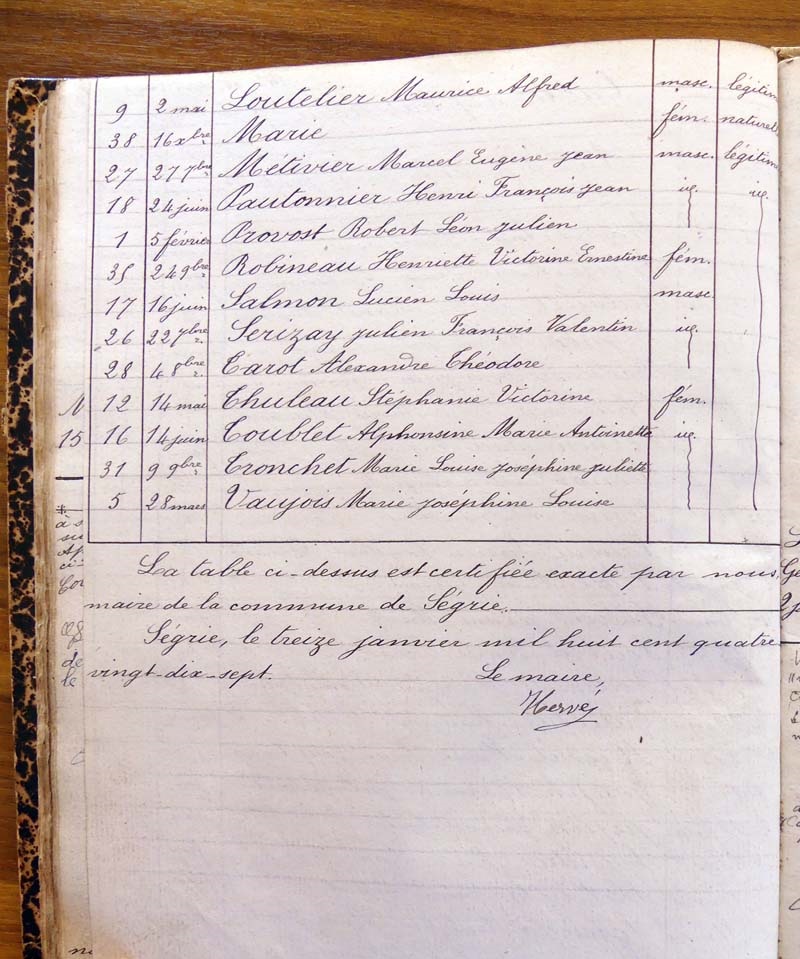 9 2 mai Loutelier Maurice Alfred masc. légitim
38 16 xbre Marie fém. naturel
27 27 7bre Métivier Marcel Eugène Jean masc. légitim
18 24 juin Pautonnier Henri François Jean id. id.
1 5 février Provost Robert Léon Julien
35 24 9bre Robineau Henriette Victorine Ernestine fém.
17 16 juin Salmon Lucien Louis masc.
26 22 7bre Serizay Julien François Valentin id.
28 4 8bre Tarot Alexandre Théodore
12 14 mai Thuleau Stéphanie Victorine fém.
15 16 14 juin Toublet Alphonsine Marie Antoinette id.
31 9 9bre Tronchet Marie Louise Joséphine Juliette
5 28 mars Vaujois Marie Joséphine Louise
La table ci-dessus est certifiée exacte par nous,
maire de la commune de Ségrie.
Ségrie, le treize janvier mil huit cent quatre
vingt-dix-sept. Le maire,
Hervé